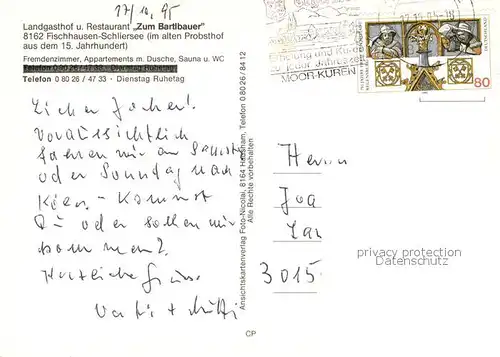 17/10.95
Landgasthof u. Restaurant „Zum Bartlbauer"
8162 Fischhausen-Schliersee (im alten Probsthof
aus dem 15. Jahrhundert)
Fremdenzimmer, Appartements m. Dusche, Sauna u. WC
Telefon 0 80 26 / 47 33 · Dienstag Ruhetag
Telefon 0 80 26 / 47 33 · Dienstag Ruhetag
Erholung und Kuren
zu jeder Jahreszeit
MOOR-KUREN
DEUTSCHLAND
80
Voraussichtlich
fahren wir am Samstag
oder Sonntag nach
Köln - Kommst
Du oder sollen wir
kommen?
Herzliche Grüsse
Ansichtskartenverlag Foto-Nicolai, 8164 Hausham, Telefon 0 80 26 / 84 12
Alle Rechte vorbehalten
CP
Herrn
3015
privacy protection
Datenschutz